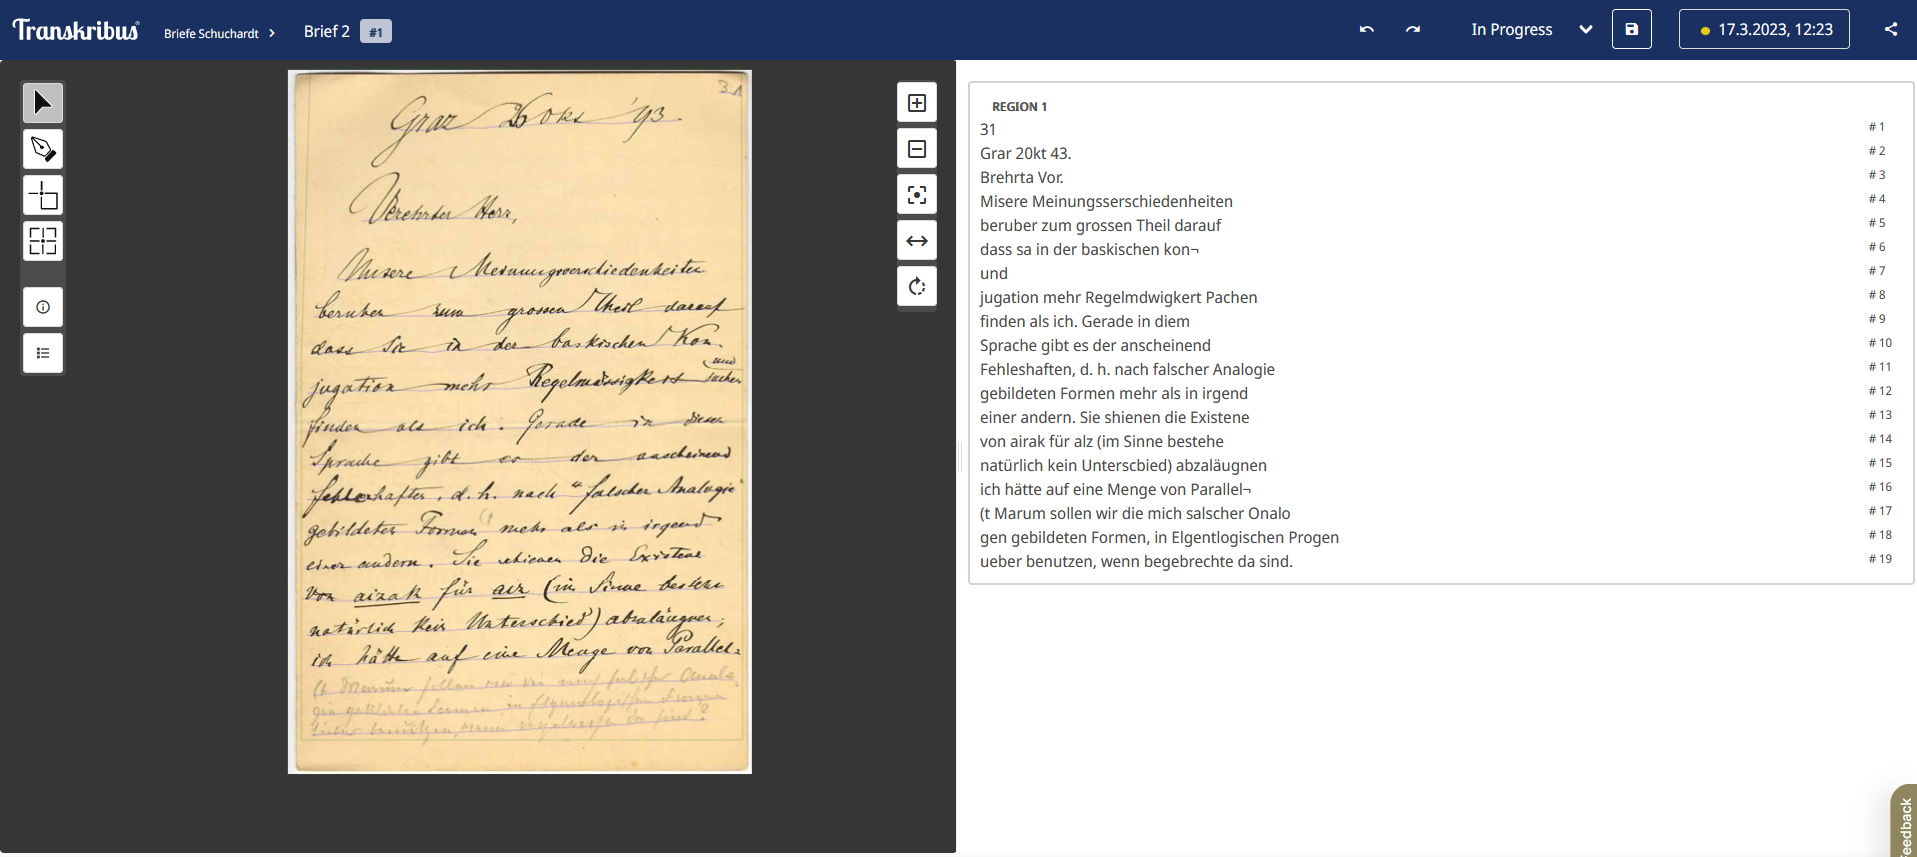 Transkribus®
Briefe Schuchardt
Brief 2
#1
In Progress
17.3.2023, 12:23
31
Graz 26 Okt '93.
Verehrter Herr,
Unsere Meinungsverschiedenheiten
beruhen zum grossen Theil darauf
dass Sie in der baskischen Kon-
und
jugation mehr Regelmässigkeit suchen
finden als ich. Gerade in dieser
Sprache gibt es der anscheinend
fehlerhaften, d. h. nach "falscher Analogie"
gebildeten Formen (1 mehr als in irgend
einer andern. Sie schienen die Existenz
von aizak für aiz (im Sinne bestehe
natürlich kein Unterschied) abzuläugnen;
ich hätte auf eine Menge von Parallel=
(1 Warum sollen wir die nach falscher Analo-
gie gebildeten Formen in
lieber benützen, wenn da sind?
REGION 1
31 #1
Grar 20kt 43. #2
Brehrta Vor. #3
Misere Meinungsserschiedenheiten #4
beruber zum grossen Theil darauf #5
dass sa in der baskischen kon¬ #6
und #7
jugation mehr Regelmdwigkert Pachen #8
finden als ich. Gerade in diem #9
Sprache gibt es der anscheinend #10
Fehleshaften, d. h. nach falscher Analogie #11
gebildeten Formen mehr als in irgend #12
einer andern. Sie shienen die Existene #13
von airak für alz (im Sinne bestehe #14
natürlich kein Unterscbied) abzaläugnen #15
ich hätte auf eine Menge von Parallel¬ #16
(t Marum sollen wir die mich salscher Onalo #17
gen gebildeten Formen, in Elgentlogischen Progen #18
ueber benutzen, wenn begebrechte da sind. #19
Feedback